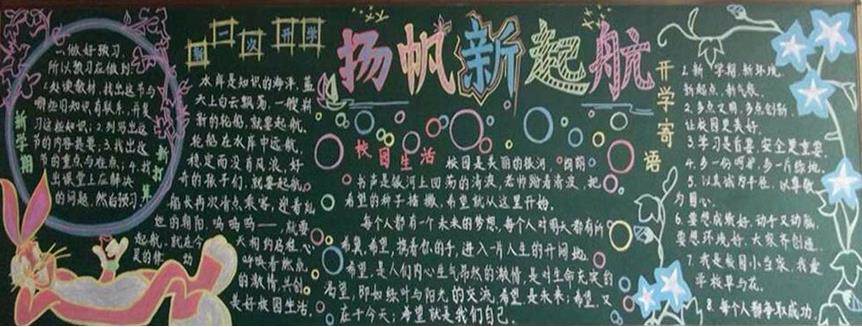 扬帆新起航
新学期
新打算
1.做好预习,
所以预习应做到:
2.读教材,找出这节与
哪些旧知识有联系,并复
习这些知识;2.列写出这
节的内容提要;3.找出这
节的重点与难点;4.找
出课堂上应解决
的问题,然后预习
第一次开学
水库是知识的海洋,蓝
天上白云飘荡,一艘崭
新的轮船,就要起航,
轮船在水库中远航,
稳定而没有风浪,好
奇的孩子们,就要起航。
船长再次清点乘客,迎着灿
烂的朝阳,呜呜呜——,就要
起航,就在今天
校园生活
校园是美丽的银河,
书声是银河上回荡的清波,老师踏着清波,把
希望的种子播撒,希望就从这里开始。
每个人都有一个未来的梦想,每个人对明天都有所
希冀,希望,携着你的手,进入一片人生的开阔地。
希望,是人们内心生气昂然的激情,是对生命充实的
渴望,即如绿叶与阳光的交流,希望是未来;希望,又
在于今天;希望就是我们自己。
的激情,共创
美好校园生活。
开学寄语
1.新学期,新环境,
新起点,新气象。
2.多点文明,多点创新,
让校园更美好。
3.学习是首要,安全更重要。
4.多一份呵护,多一片绿地。
5.以真诚为半径,以尊敬
为圆心。
6.要想成绩好,动手又动脑,
要想环境好,大家齐创造。
7.我是校园小当家,我爱
学校草与花。
8.每个人都争取成功。